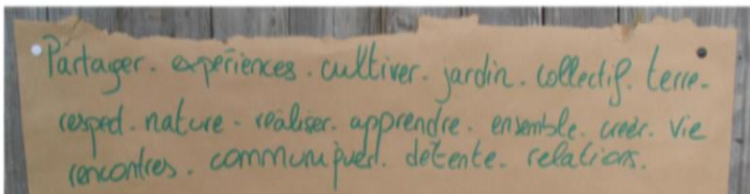 Partager. expériences. cultiver. jardin. collectif. terre.
respect. nature. réaliser. apprendre. ensemble. créer. vie
rencontres. communiquer. détente. relations.